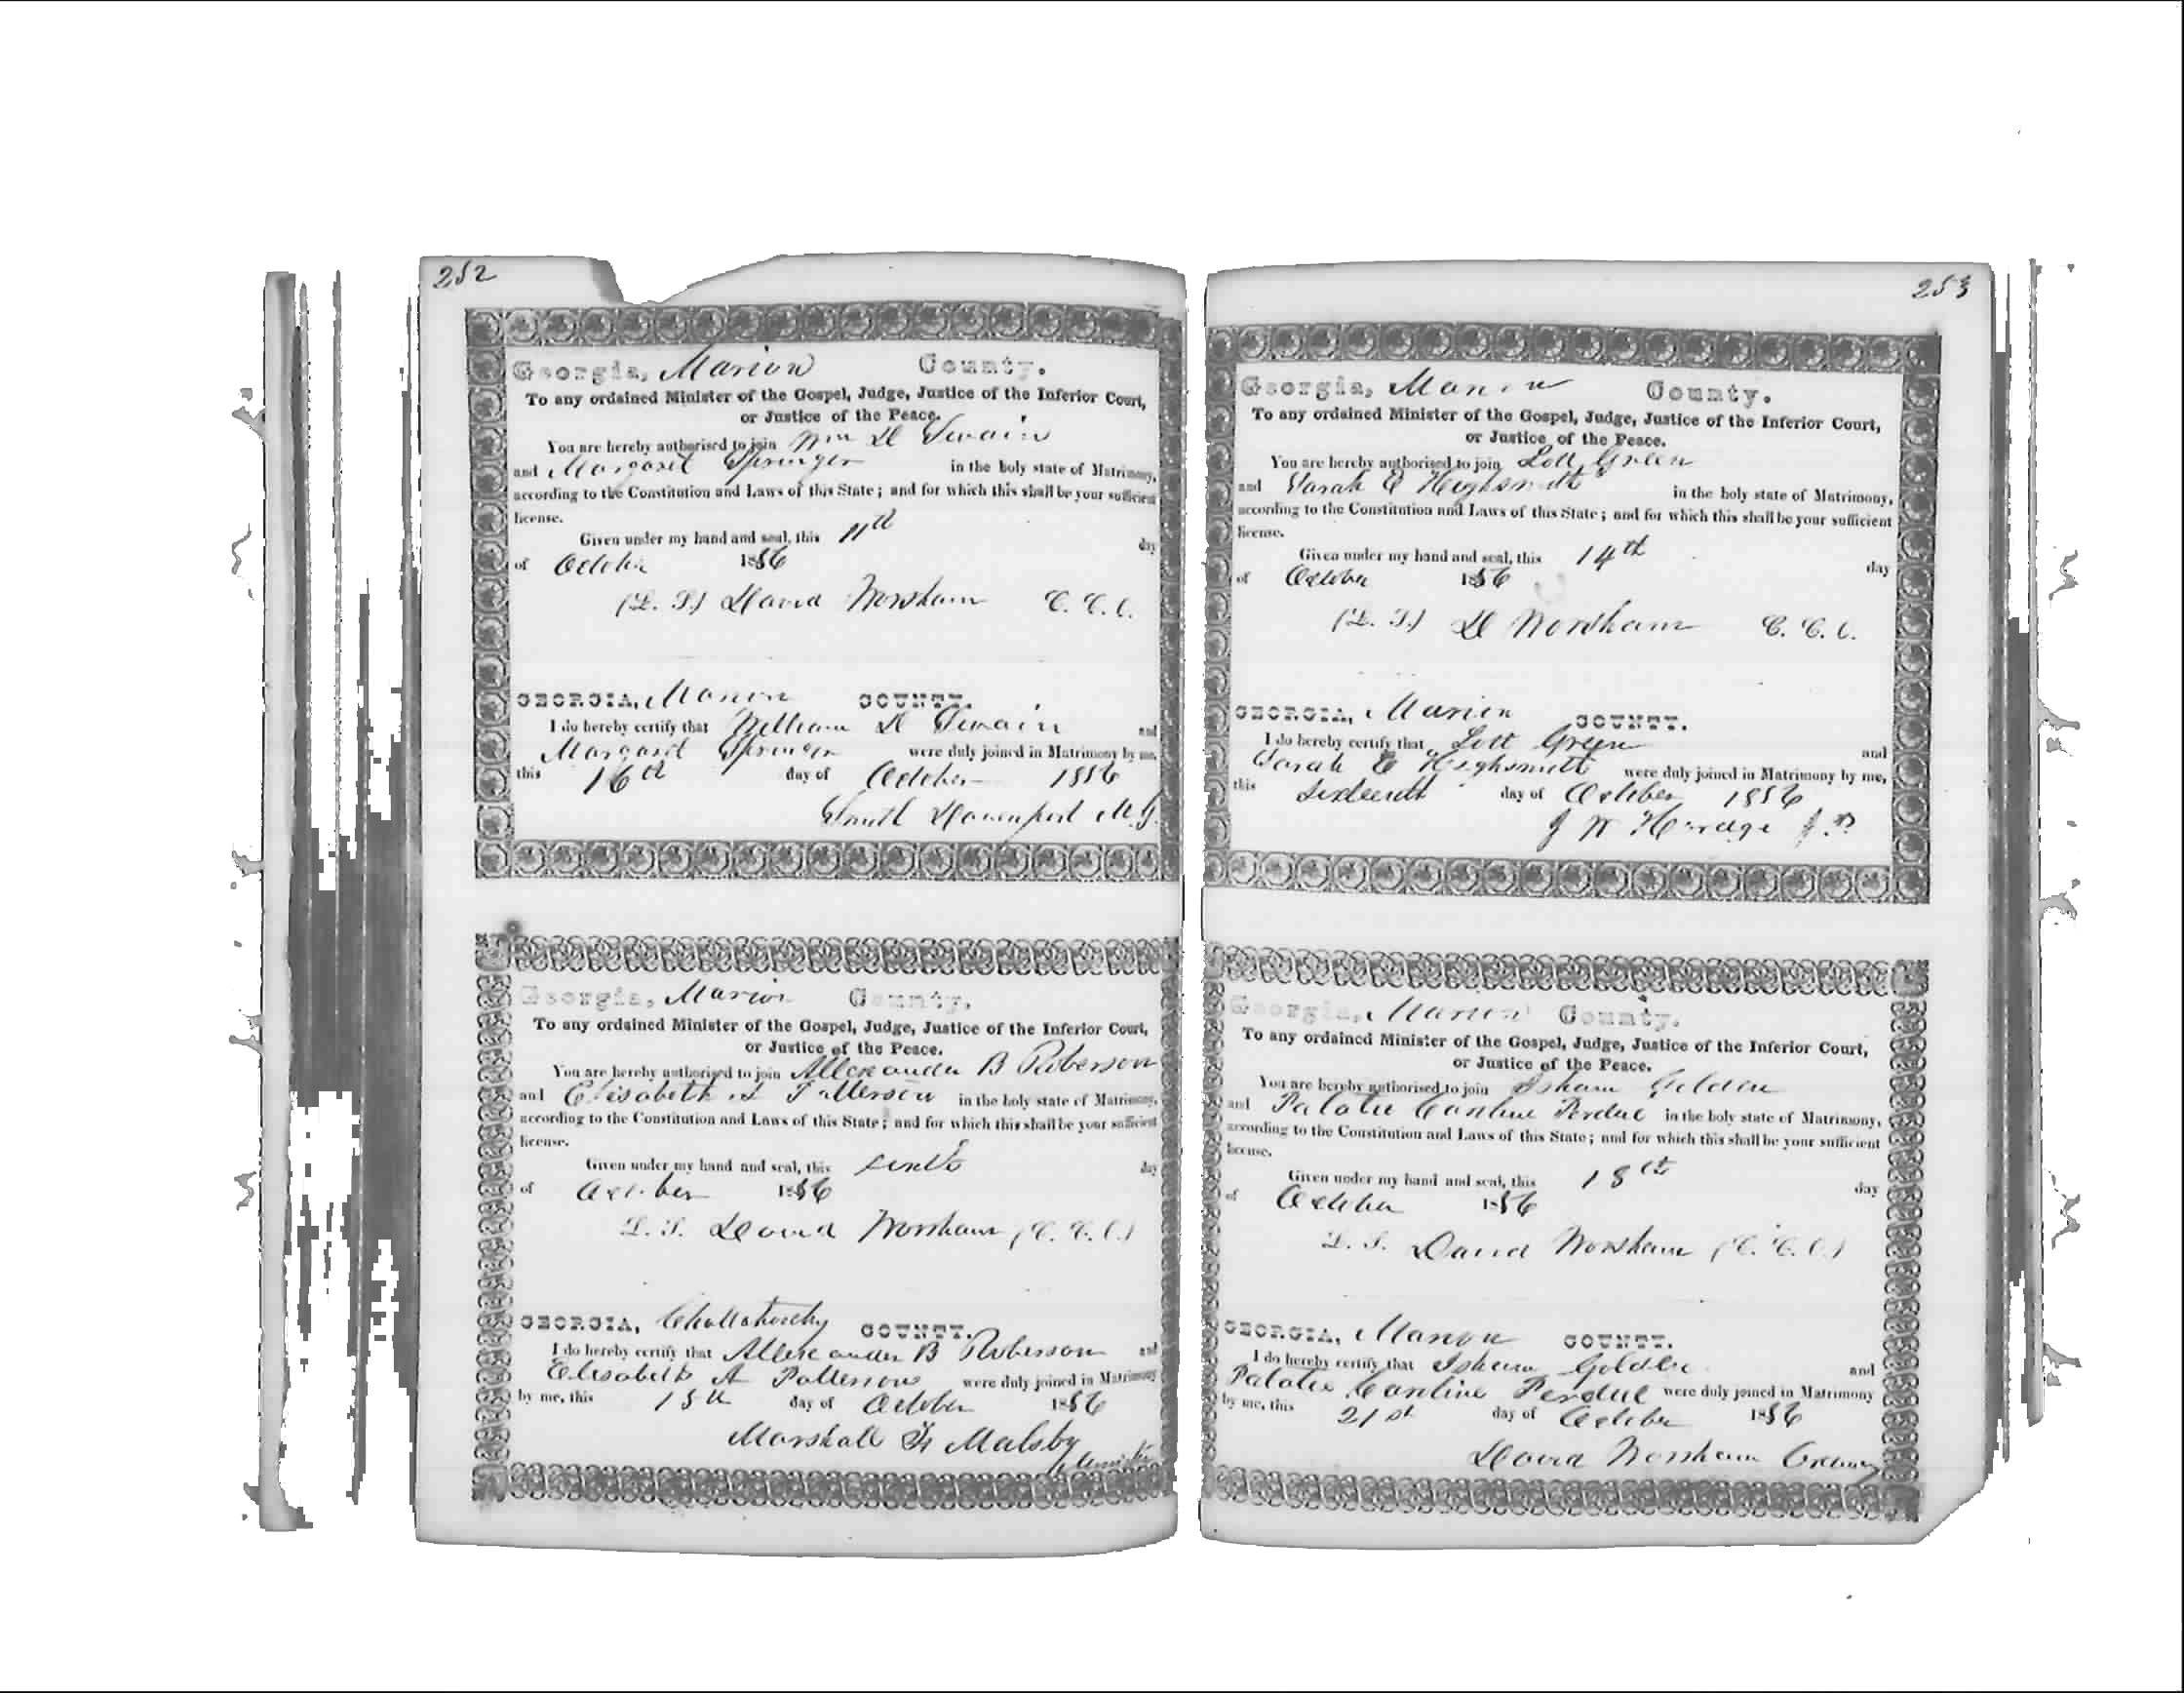 252
Georgia, Marion County.
To any ordained Minister of the Gospel, Judge, Justice of the Inferior Court,
or Justice of the Peace.
You are hereby authorised to join Wm D Swain
and Margaret Springer in the holy state of Matrimony,
according to the Constitution and Laws of this State; and for which this shall be your sufficient
license.
Given under my hand and seal, this 11th day
of October 1856
(L. S.) David Worsham C. C. O.
GEORGIA, Marion COUNTY.
I do hereby certify that William D Swain and
Margaret Springer were duly joined in Matrimony by me,
this 16th day of October 1856
Smith Davenport M. G.
Georgia, Marion County.
To any ordained Minister of the Gospel, Judge, Justice of the Inferior Court,
or Justice of the Peace.
You are hereby authorised to join Allexander B Roberson
and Elisabeth A Patterson in the holy state of Matrimony,
according to the Constitution and Laws of this State; and for which this shall be your sufficient
license.
Given under my hand and seal, this day
of October 1856
L. S. David Worsham (C. C. O.)
GEORGIA, Chattahoochy COUNTY.
I do hereby certify that Allexander B Roberson and
Elisabeth A Patterson were duly joined in Matrimony
by me, this 15th day of October 1856
Marshall F Malsby
253
Georgia, Marion County.
To any ordained Minister of the Gospel, Judge, Justice of the Inferior Court,
or Justice of the Peace.
You are hereby authorised to join Lott Green
and Sarah E Highsmith in the holy state of Matrimony,
according to the Constitution and Laws of this State; and for which this shall be your sufficient
license.
Given under my hand and seal, this 14th day
of October 1856
(L. S.) D Worsham C. C. O.
GEORGIA, Marion COUNTY.
I do hereby certify that Lott Green and
Sarah E Highsmith were duly joined in Matrimony by me,
this Sixteenth day of October 1856
J W Herndge J. P
Georgia, Marion County.
To any ordained Minister of the Gospel, Judge, Justice of the Inferior Court,
or Justice of the Peace.
You are hereby authorised to join Isham Golden
and Palatie Cantine Perdue in the holy state of Matrimony,
according to the Constitution and Laws of this State; and for which this shall be your sufficient
license.
Given under my hand and seal, this 18th day
of October 1856
L. S. David Worsham (C. C. O.)
GEORGIA, Marion COUNTY.
I do hereby certify that Isham Golden and
Palatie Cantine Perdue were duly joined in Matrimony
by me, this 21st day of October 1856
David Worsham Ordinary